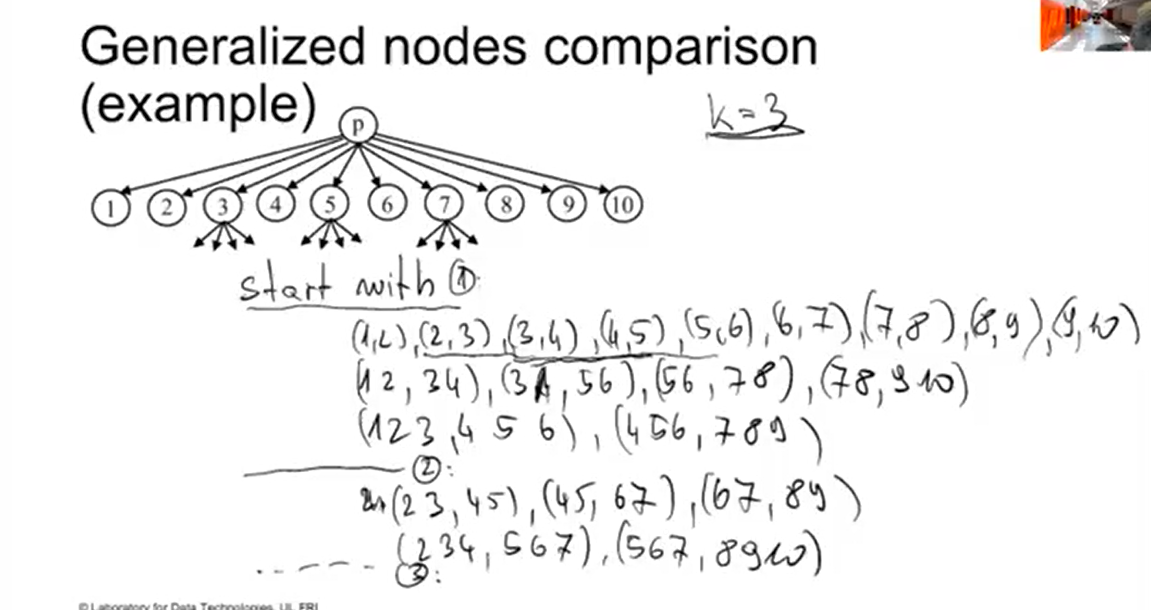 Generalized nodes comparison
(example)
k=3
p
1 2 3 4 5 6 7 8 9 10
start with ①:
(1,2),(2,3),(3,4),(4,5),(5,6),(6,7),(7,8),(8,9),(9,10)
(12,34),(34,56),(56,78),(78,910)
(123,456),(456,789)
②:
(23,45),(45,67),(67,89)
(234,567),(567,8910)
③:
© Laboratory for Data Technologies, UL FRI